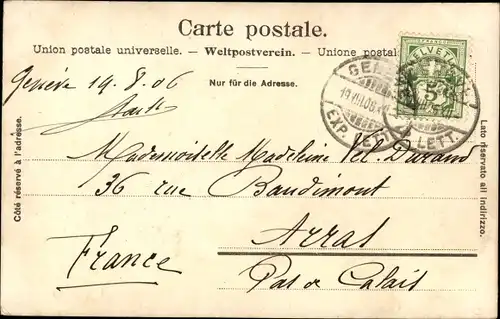 Carte postale.
Union postale universelle. – Weltpostverein. – Unione postal
Nur für die Adresse.
Côté réservé à l'adresse.
Lato riservato all indirizzo.
FRANCO
HELVETIA
5
EXP. LETT.
EXP. LETT.
Genève 19.8.06
Mademoiselle Madeleine Durand
36 rue Baudimont
Arras
France
Pas de Calais